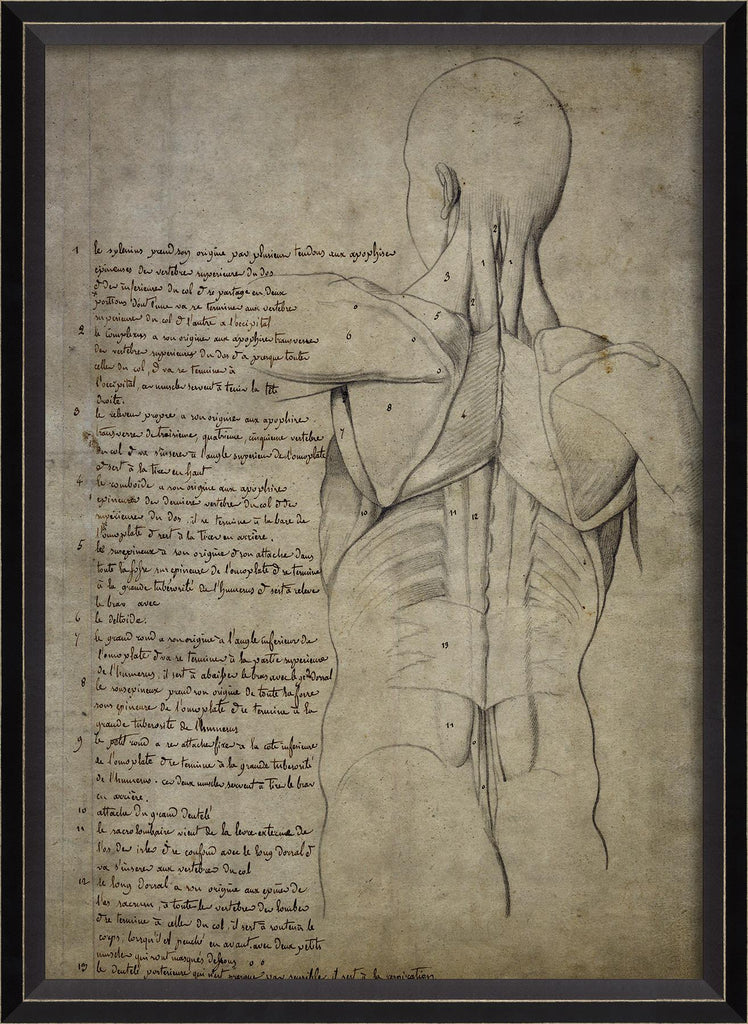 1 le splenius prend son origine par plusieurs tendons aux apophises
epineuses des vertebre superieures du dos
et des inferieures du col et se partage en deux
portions dont l'une va se termine aux vertebre
superieures du col et l'autre a l'occipital
2 le complexus a son origine aux apophise transverse
des vertebre superieures du dos et a presque toutes
celles du col, et va se terminer à
l'occipital, ces muscles servent à tenir la tête
droite.
3 le releveur propre a son origine aux apophise
transverse de troisieme, quatrieme, cinquieme vertebre
du col et va s'inserer à l'angle superieur de l'omoplate
et sert à la tirer en haut
4 le romboide a son origine aux apophise
epineuse des derniere vertebre du col et des
superieure du Dos, il se termine à la base de
l'omoplate et sert à la tirer en arriere.
5 le surepineux a son origine et son attache dans
toute la fosse sur epineuse de l'omoplate et se termine
à la grande tubérosité de l'humerus et sert à relever
le bras avec
6 le deltoide.
7 le grand rond a son origine à l'angle inferieur de
l'omoplate et va se termine à la partie superieure
de l'humerus, il sert à abaisser le bras avec le grd Dorsal
8 le sousepineux prend son origine de toute la fosse
sous epineuse de l'omoplate et se termine à la
grande tuberosité de l'humerus
9 le petit rond a se attache fixe à la cote inferieure
de l'omoplate et se termine à la grande tuberosité
de l'humerus. ces deux muscles servent à tire le bras
en arriere.
10 attache du grand dentelé
11 le sacro lombaire vient de la levre externe de
l'os des iles et se confond avec le long Dorsal et
va s'inserer aux vertebre du col
12 le long Dorsal a son origine aux epine de
l'os sacrum, à toute les vertebre des lombes
et se termine à celles du col, il sert à soutenir le
corps, lorsqu'il est penché en avant, avec deux petits
muscles qui sont masqués dessous o o
13 le dentelé posterieure qui n'est presque pas sensible il sert à la respiration
2
1
1
3
2
5
6
4
8
7
10
11
12
13
11